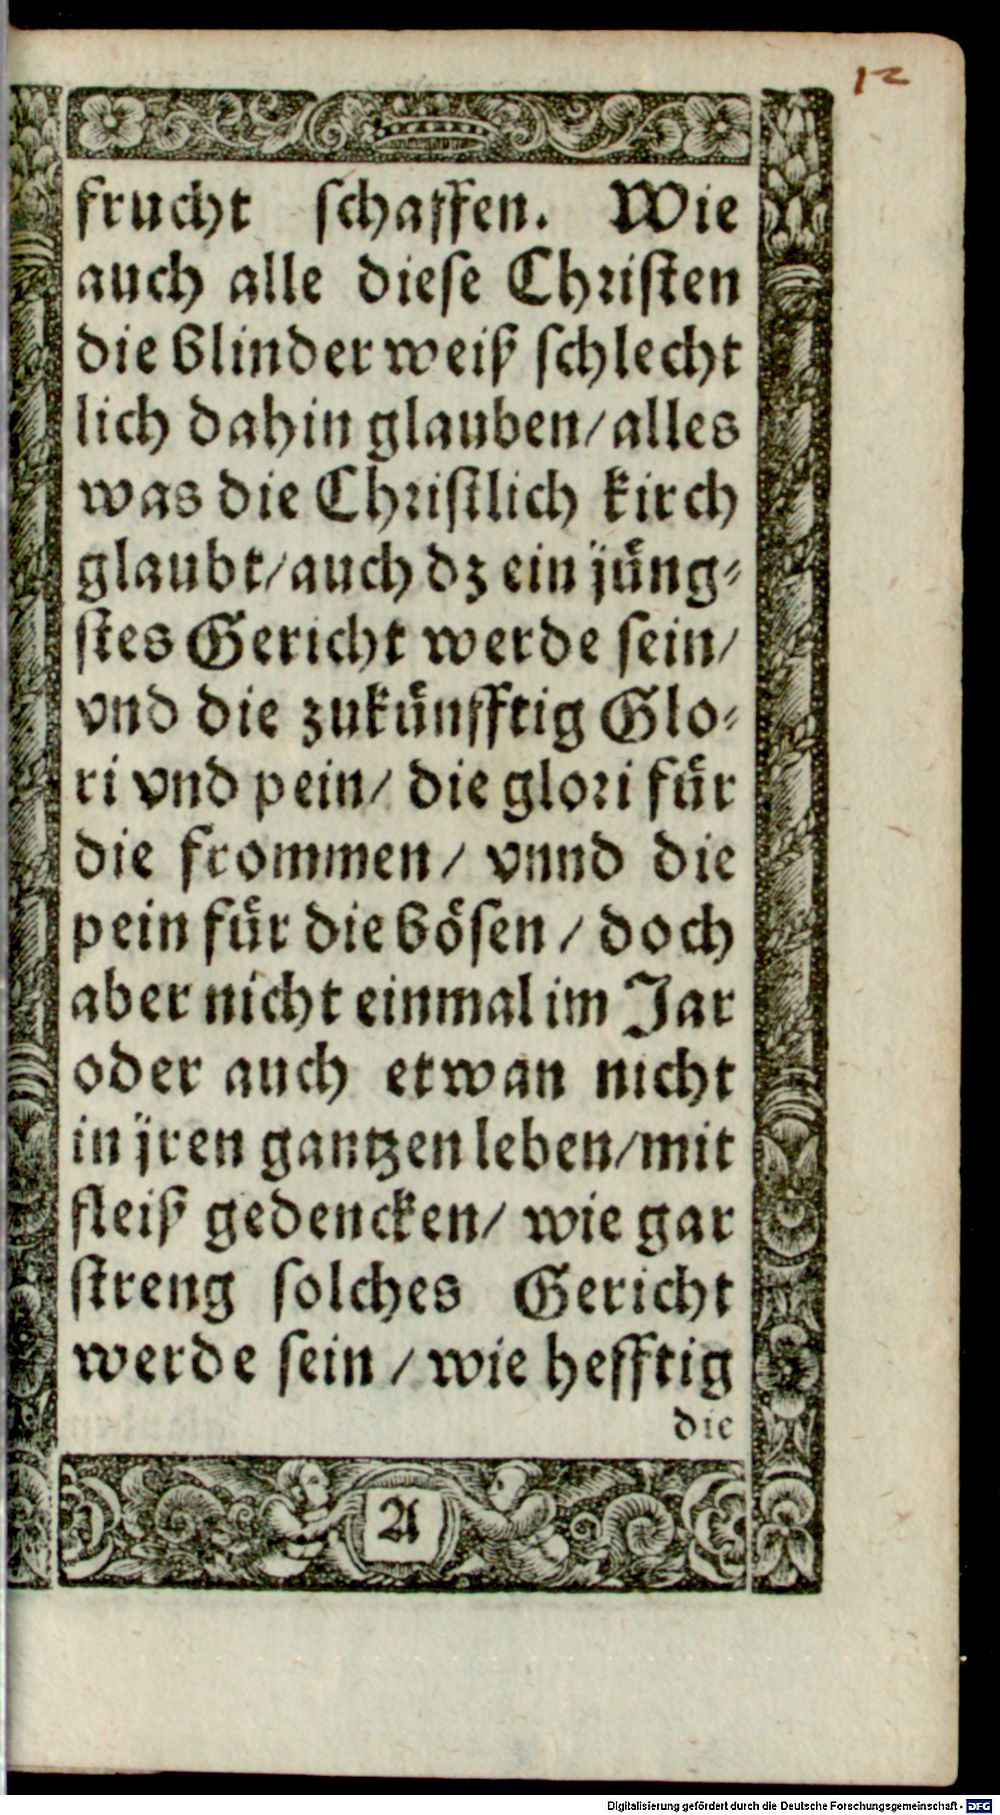 12
frucht schaffen. Wie
auch alle diese Christen
die blinder weiß schlecht
lich dahin glauben/ alles
was die Christlich kirch
glaubt/ auch dz ein jüng⸗
stes Gericht werde sein/
vnd die zukünfftig Glo⸗
ri vnd pein/ die glori für
die frommen/ vnnd die
pein für die bösen/ doch
aber nicht einmal im Jar
oder auch etwan nicht
in jren gantzen leben/ mit
fleiß gedencken/ wie gar
streng solches Gericht
werde sein/ wie hefftig
die
A
Digitalisierung gefördert durch die Deutsche Forschungsgemeinschaft - DFG